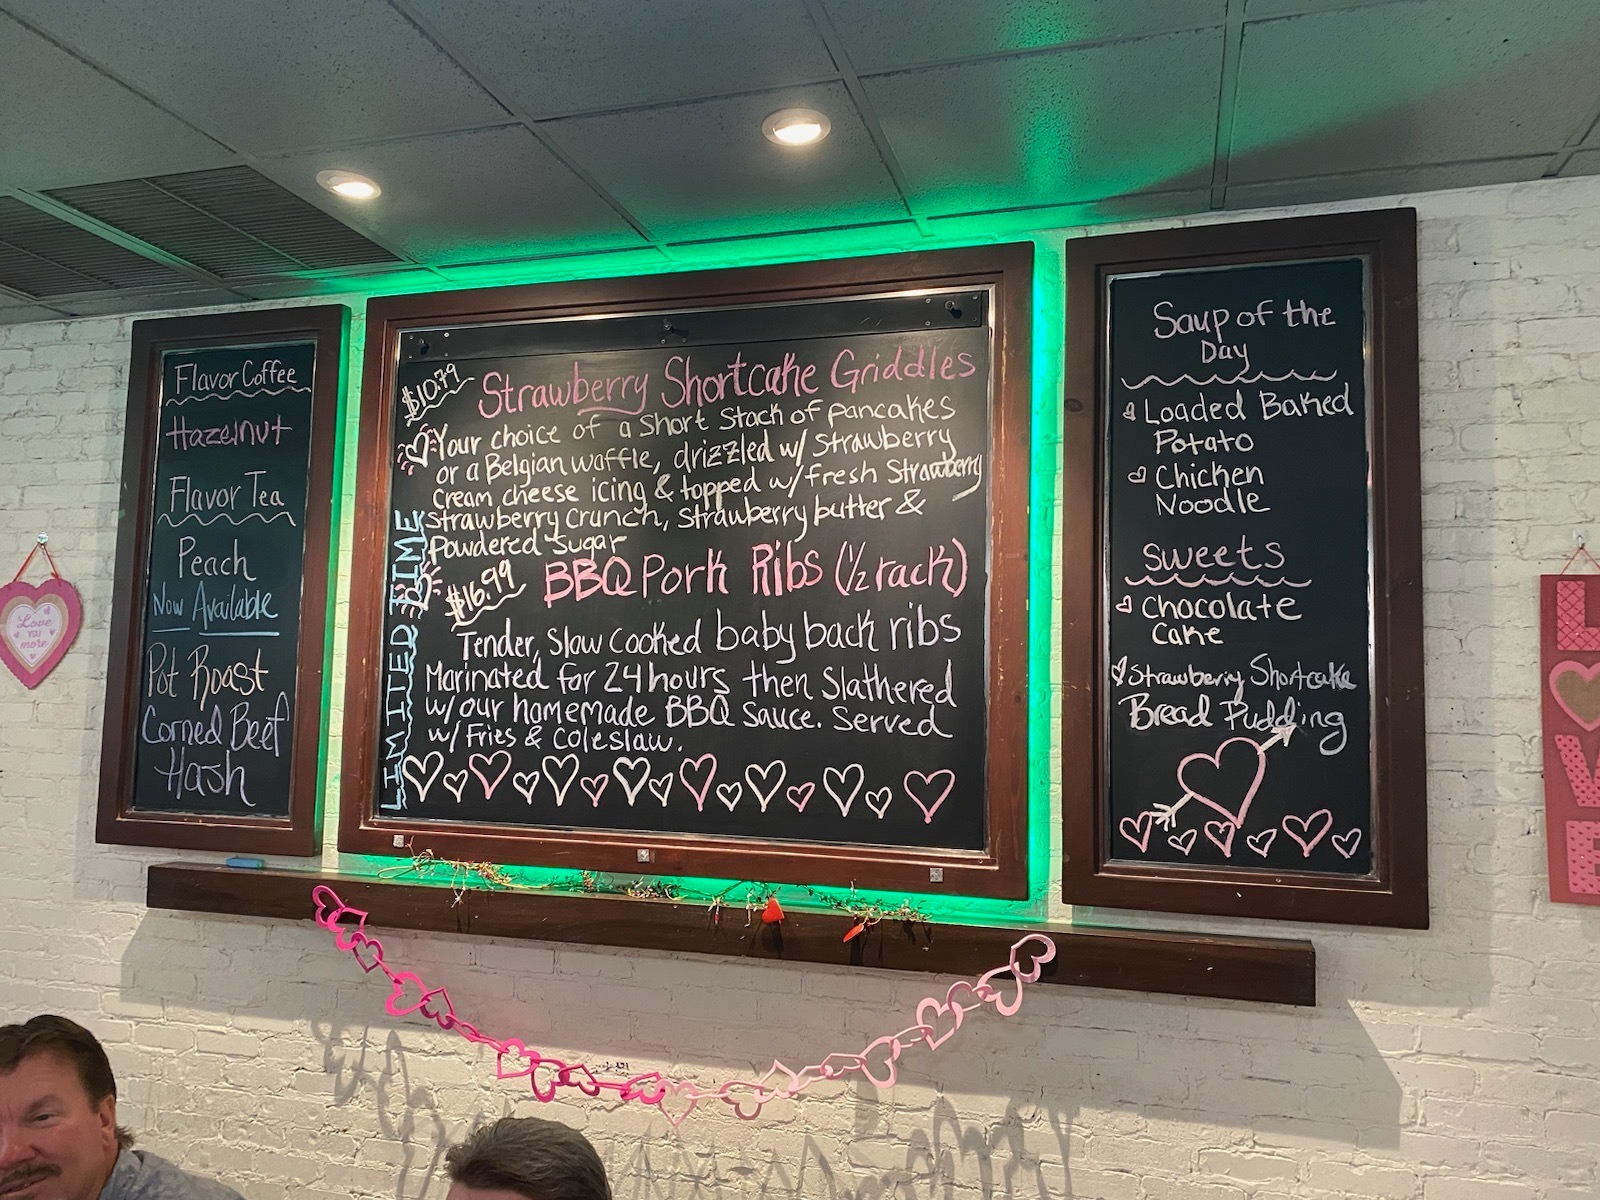 Flavor Coffee
Hazelnut
Flavor Tea
Peach
Now Available
Pot Roast
Corned Beef
Hash
$10.79
Strawberry Shortcake Griddles
Your choice of a short stack of pancakes
or a Belgian waffle, drizzled w/ strawberry
cream cheese icing & topped w/ fresh strawberry
strawberry crunch, strawberry butter &
powdered sugar
LIMITED TIME
$16.99
BBQ Pork Ribs (1/2 rack)
Tender, slow cooked baby back ribs
Marinated for 24 hours then slathered
w/ our homemade BBQ sauce. Served
w/ Fries & coleslaw.
Soup of the
Day
Loaded Baked
Potato
Chicken
Noodle
Sweets
Chocolate
Cake
Strawberry Shortcake
Bread Pudding
Love
you
more
LOVE